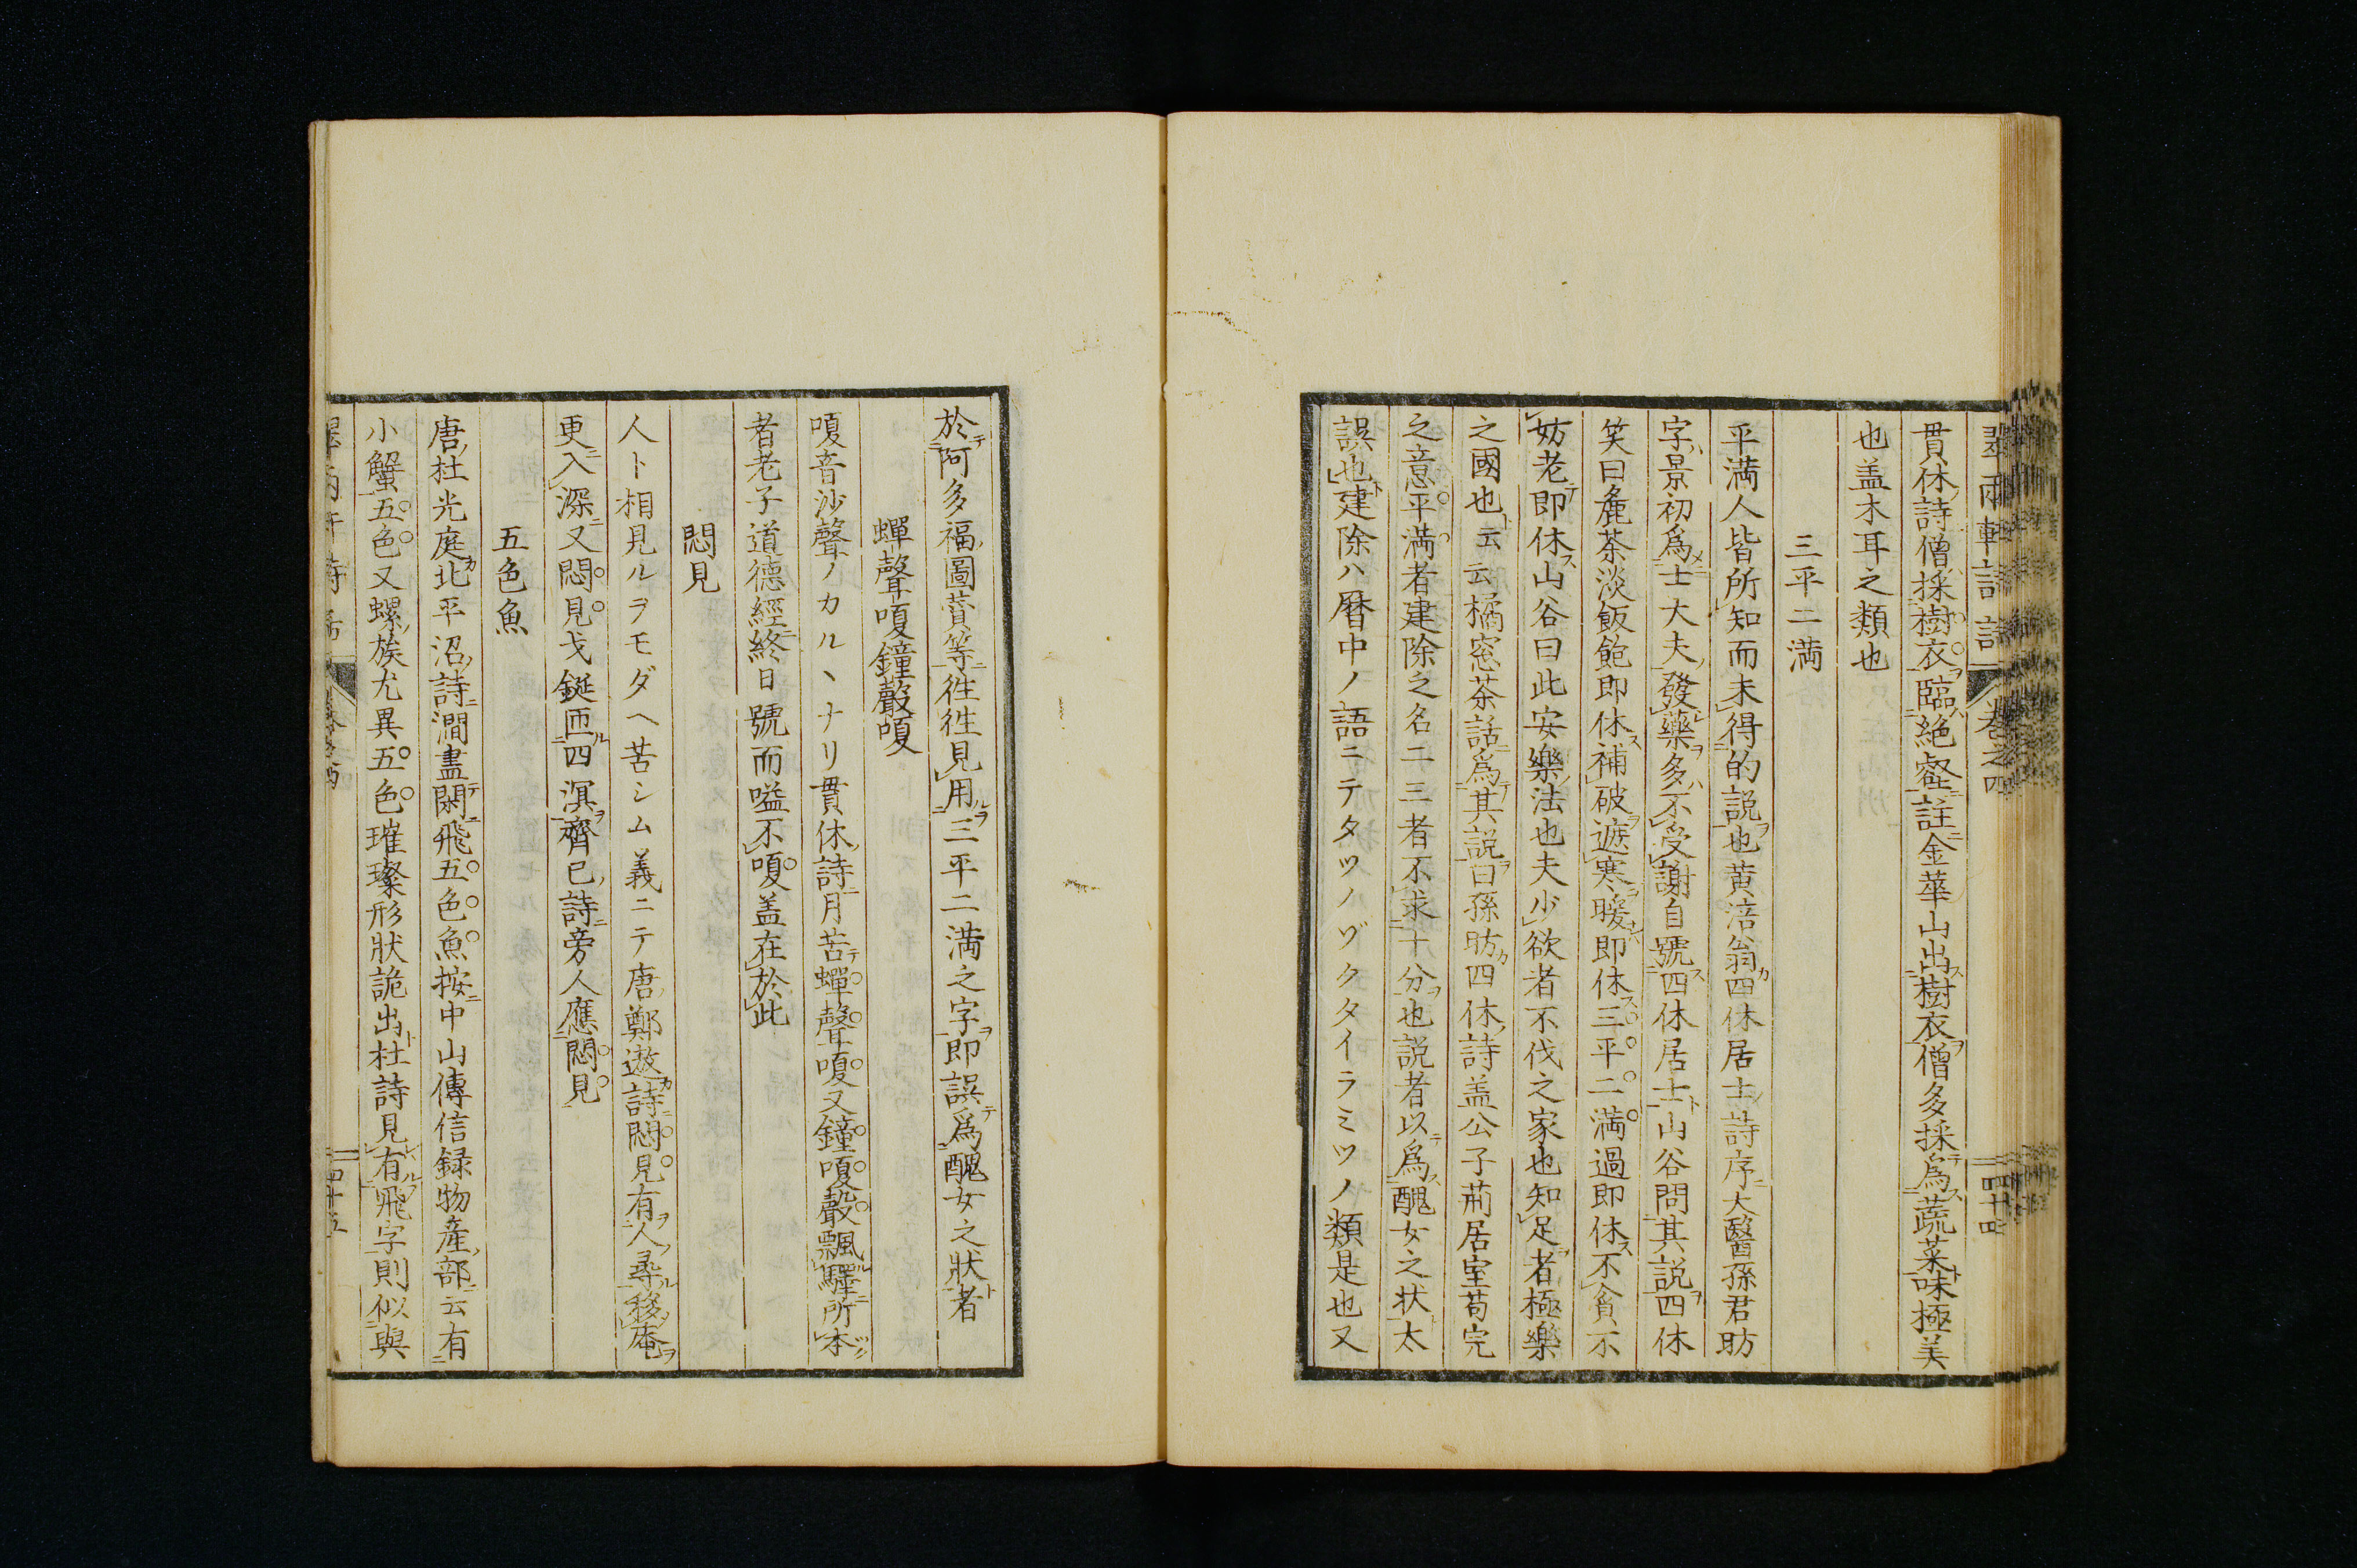 翠雨軒詩話 卷之四 四十四
貫休詩僧採樹衣臨絶壑註金華山出樹衣僧多採為蔬菜味極美
也盖木耳之類也
三平二満
平満人皆所知而未得的説也黄涪翁四休居士詩序大醫孫君昉
字景初爲士大夫發藥多不受謝自號四休居士山谷問其説四休
笑曰麁茶淡飯飽即休補破遮寒暖即休三平二満過即休不貪不
妨老即休山谷曰此安樂法也夫少欲者不伐之家也知足者極樂
之國也云云橘窓茶話爲其説曰孫昉四休詩盖公子荊居室苟完
之意平満者建除之名二三者不求十分也説者以爲醜女之状太
誤也建除ハ暦中ノ語ニテタツノゾクタイラミツノ類是也又
於阿多福圖賛等徃徃見用三平二満之字即誤爲醜女之狀者
蟬聲嗄鐘聲嗄
嗄音沙聲ノカルヽナリ貫休詩月苦蟬聲嗄又鐘嗄聲飄驛所本
者老子道德經終日號而嗌不嗄盖在於此
悶見
人ト相見ルヲモダヘ苦シム義ニテ唐鄭遨詩悶見有人尋移庵
更入深又悶見戈鋋匝四溟齊已詩旁人應悶見
五色魚
唐杜光庭北平沼詩澗畫閑飛五色魚按中山傳信録物産部云有
小蟹五色又螺族尤異五色璀璨形狀詭出杜詩見有飛字則似與